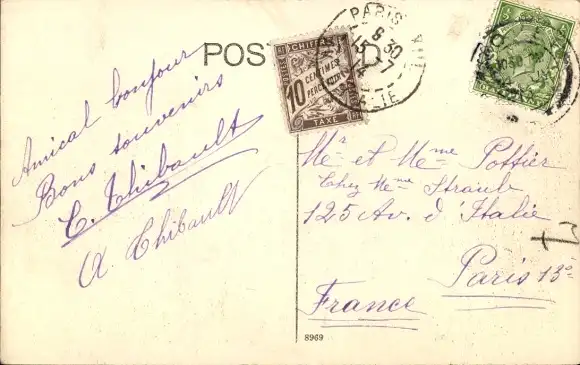 POST
PARIS
6 30
15 - 7
14
CHIFFRE
10
CENTIMES
PERCEVOIR
TAXE
Amical bonjour
Bons souvenirs
C. Thibault
A Thibault
Mr et Mme Pottier
Chez Mme Straub
125 Av. d'Italie
Paris 13e
France
8969